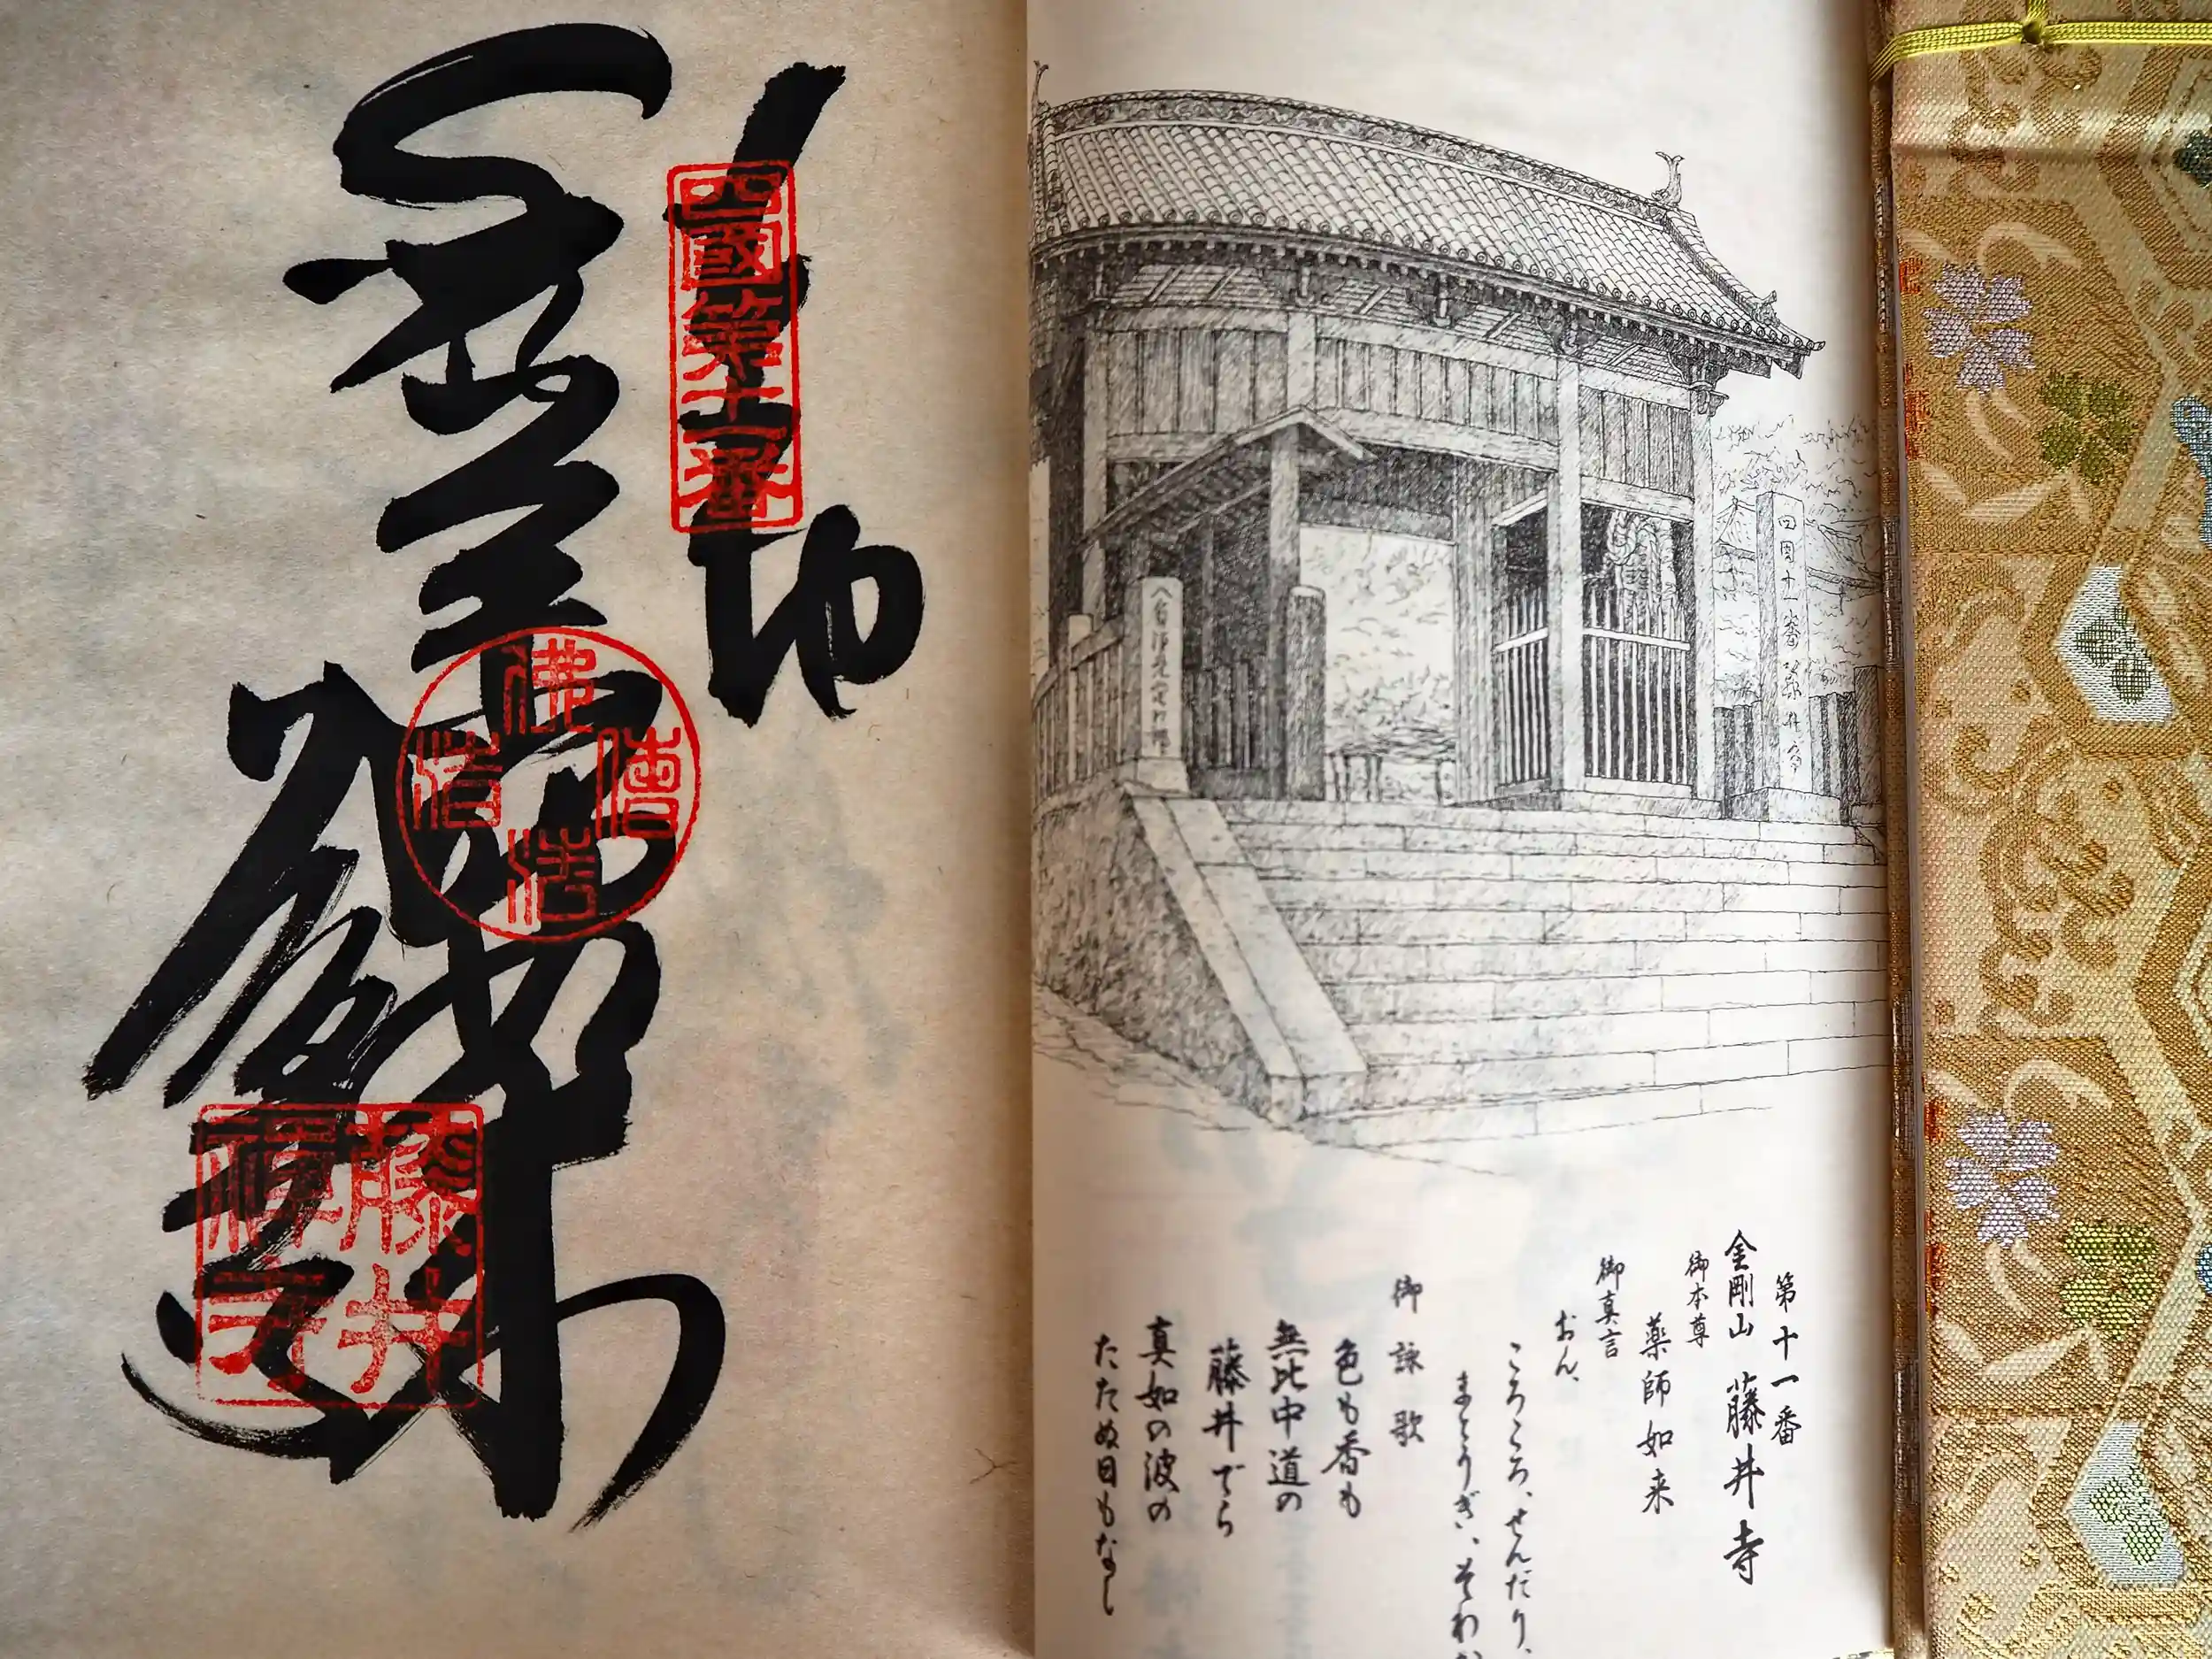 四国十一番藤井寺
第十一番
金剛山 藤井寺
御本尊
薬師如来
御真言
おん、
ころころ、せんだり、
まとうぎ、そわか
御詠歌
色も香も
無比中道の
藤井でら
真如の波の
たたぬ日もなし
四國第十一番
藤井
禅寺